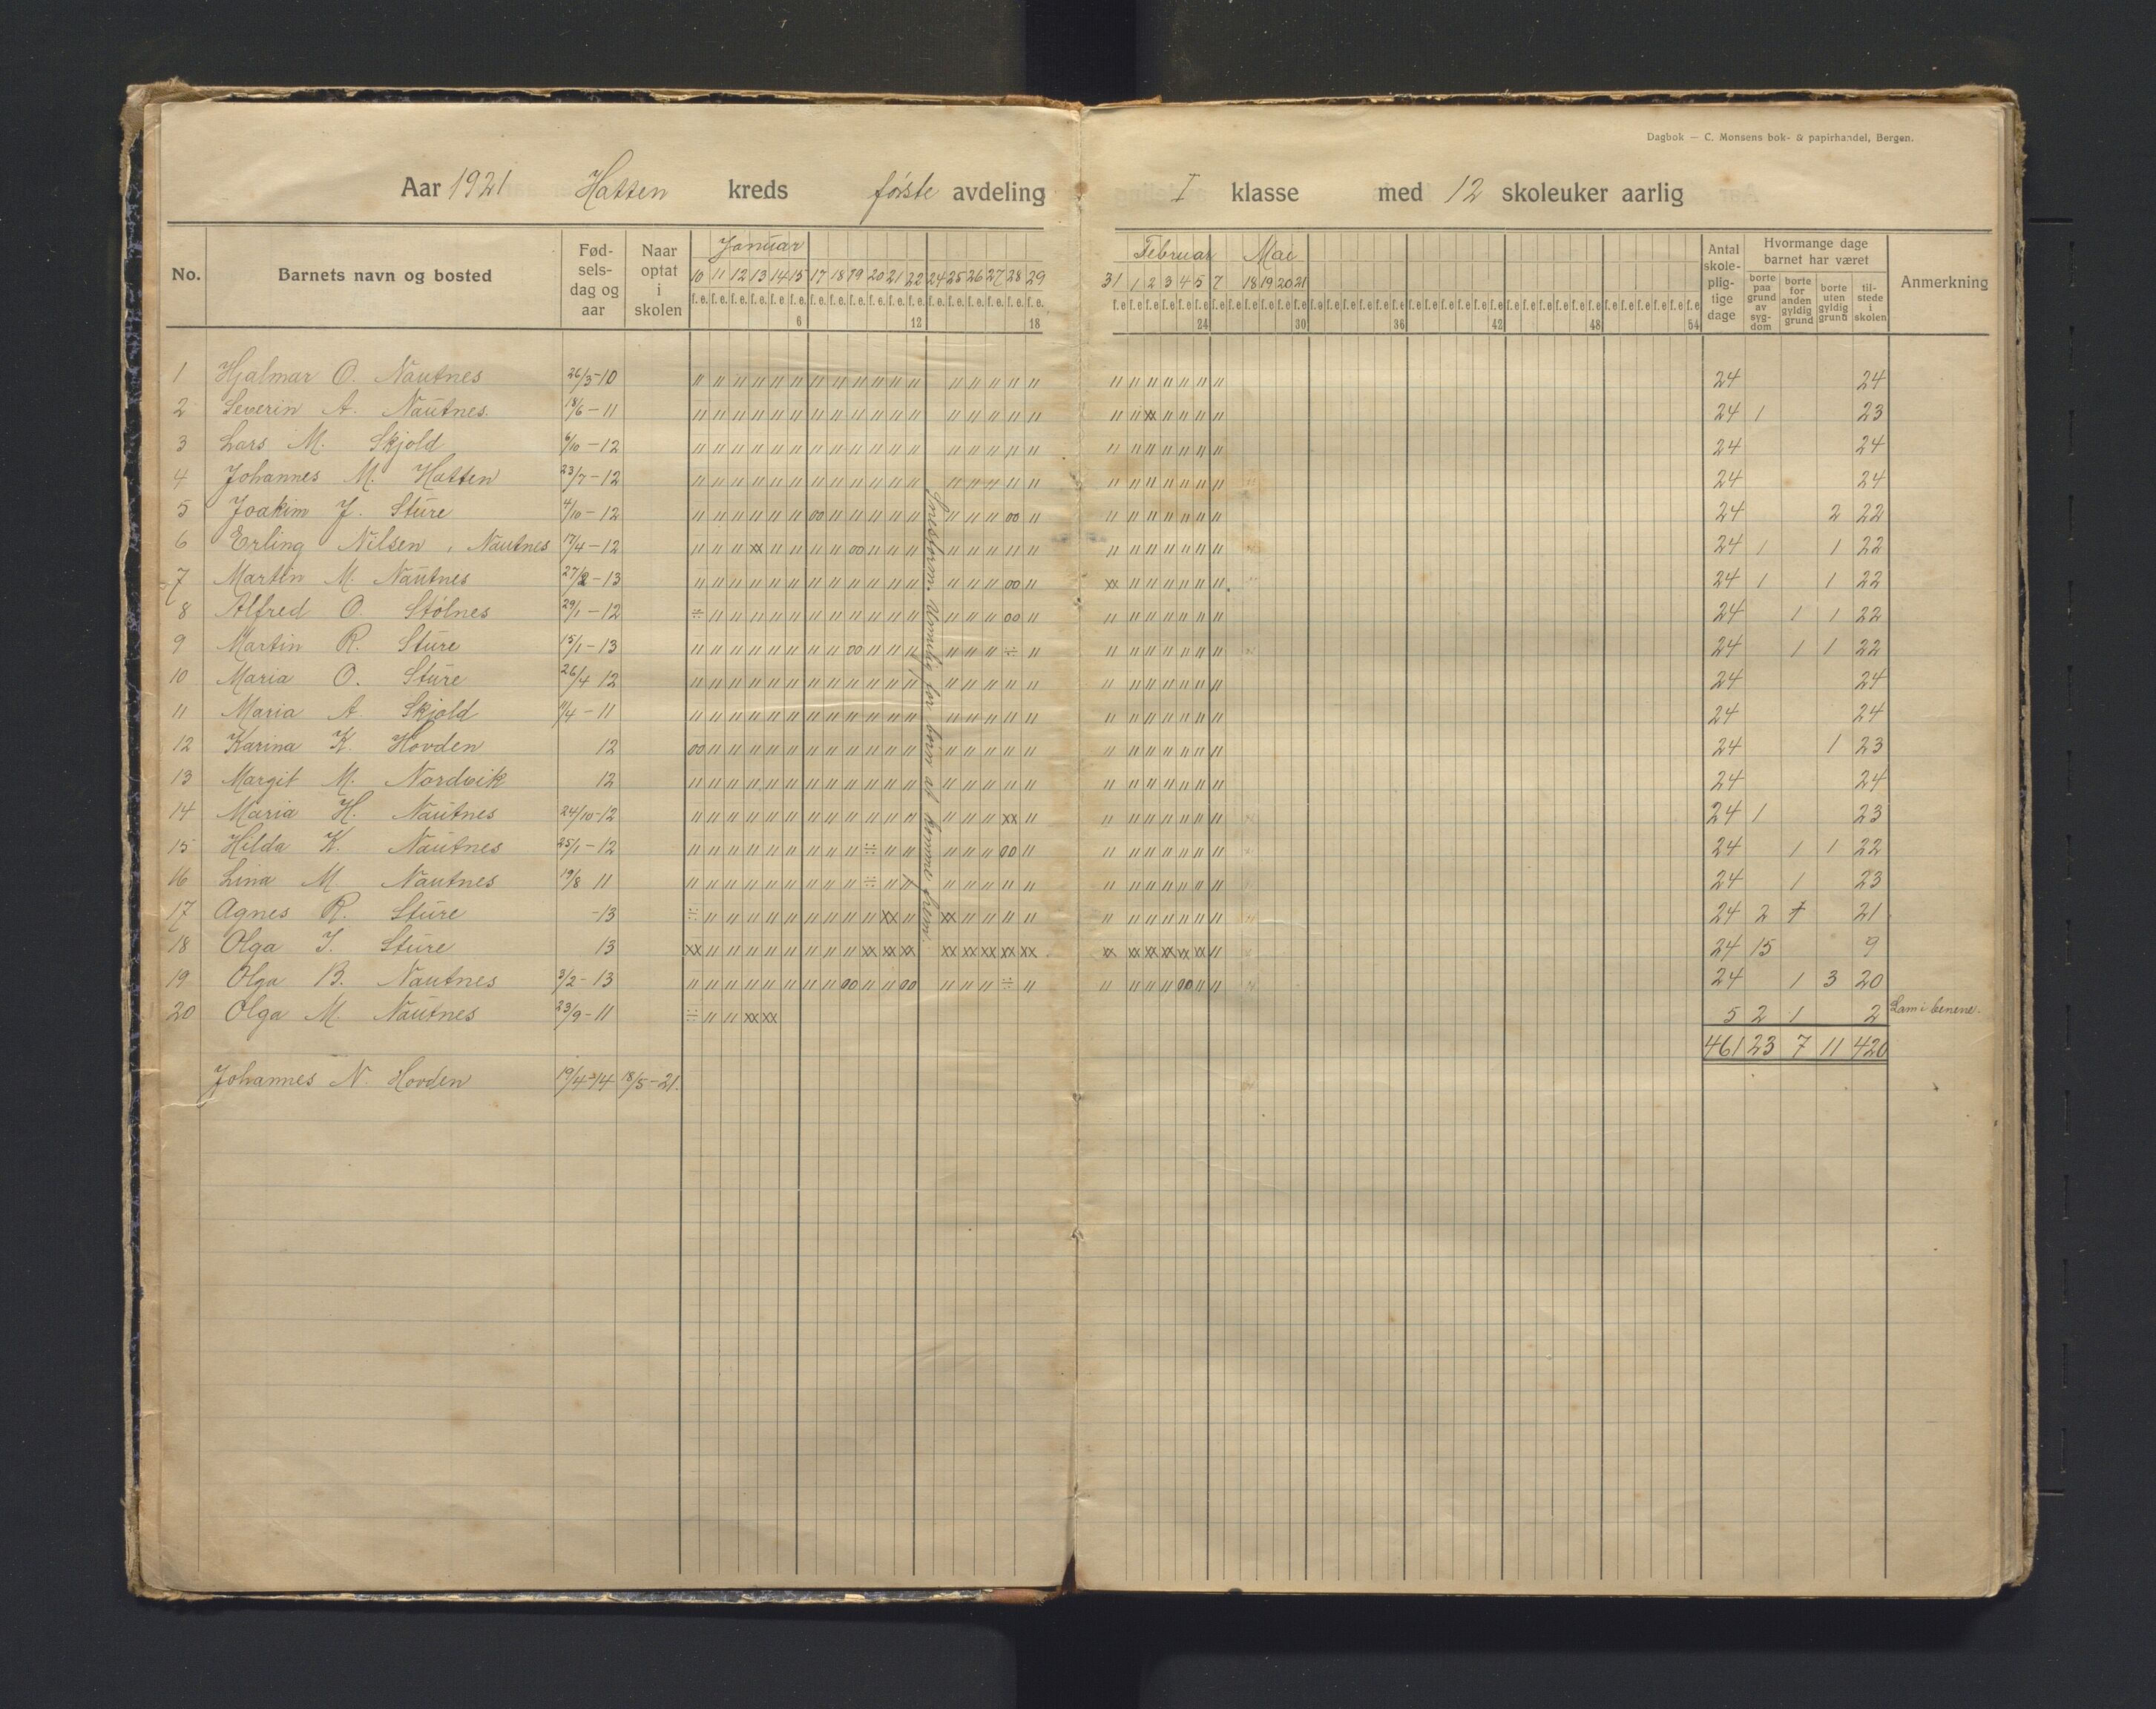 Dagbok — C. Monsens bok- & papirhandel, Bergen.
Aar 1921 Hatten kreds første avdeling I klasse med 12 skoleuker aarlig
No. Barnets navn og bosted Fød-sels-dag og aar Naar optat i skolen Januar Februar Mai Antal skole-plig-tige dage Hvormange dage barnet har været Anmerkning
borte paa grund av syg-dom borte for anden gyldig grund borte uten gyldig grund til-stede i skolen
10 11 12 13 14 15 17 18 19 20 21 22 24 25 26 27 28 29 31 1 2 3 4 5 7 18 19 20 21
6 12 18 24 30 36 42 48 54
1 Hjalmar O. Nautnes 26/3-10 24 24
2 Severin A. Nautnes. 18/6-11 24 1 23
3 Lars M. Skjold 6/10-12 24 24
4 Johannes M. Hatten 23/7-12 24 24
5 Joakim J. Sture 4/10-12 24 2 22
6 Erling Nilsen, Nautnes 17/4-12 24 1 1 22
7 Martin M. Nautnes 27/2-13 24 1 1 22
8 Alfred O. Stølnes 29/1-12 24 1 1 22
9 Martin R. Sture 15/1-13 24 1 1 22
10 Maria O. Sture 26/4 12 24 24
11 Maria A. Skjold 11/4-11 24 24
12 Karina K. Hovden 12 24 1 23
13 Margit M. Nordvik 12 24 24
14 Maria H. Nautnes 24/10-12 24 1 23
15 Hilda K. Nautnes 25/1-12 24 1 1 22
16 Lina M. Nautnes 19/8 11 24 1 23
17 Agnes R. Sture -13 24 2 1 21
18 Olga J. Sture 13 24 15 9
19 Olga B. Nautnes 3/2-13 24 1 3 20
20 Olga M. Nautnes 23/9-11 5 2 1 2 Lam i benene.
461 23 7 11 420
Johannes N. Hovden 19/4-14 18/5-21.
Snestorm. Umulig for børn at komme frem.